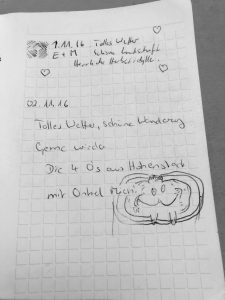 1.11.16 Tolles Wetter
E + M Schöne Landschaft
Herrliche Herbstidylle.
02.11.16
Tolles Wetter, schöne Wanderung
Gerne wieder
Die 4 Ö's aus Hohenstadt
mit Onkel